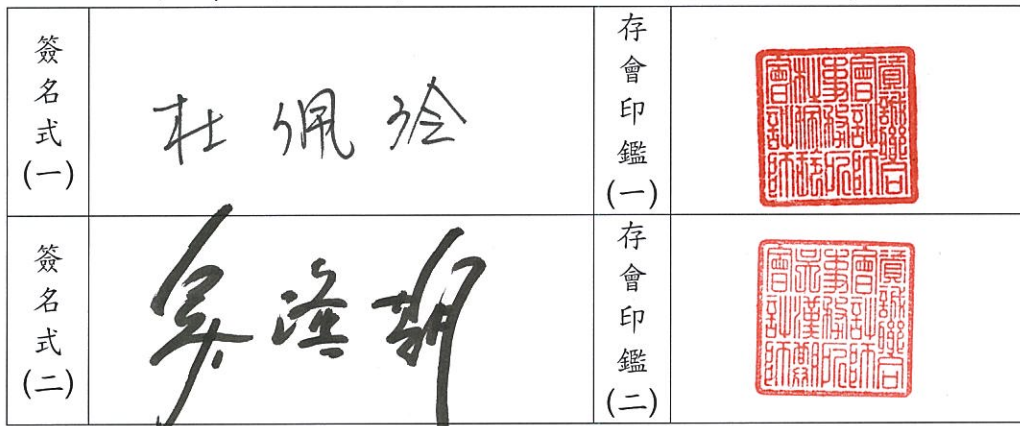 簽名式(一)
杜佩玲
存會印鑑(一)
資誠聯合
會計師
事務所
杜佩玲
會計師
簽名式(二)
吳漢期
存會印鑑(二)
資誠聯合
會計師
事務所
吳漢期
會計師